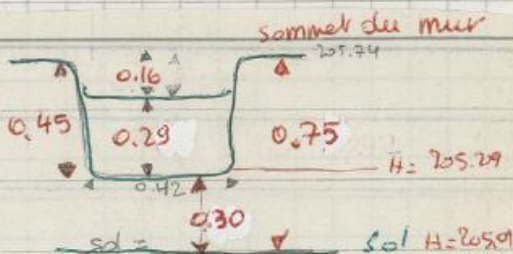 sommet du mur
205.74
0.16
0.45
0.29
0.75
H= 205.29
0.42
0.30
sol =
Sol H=205.01